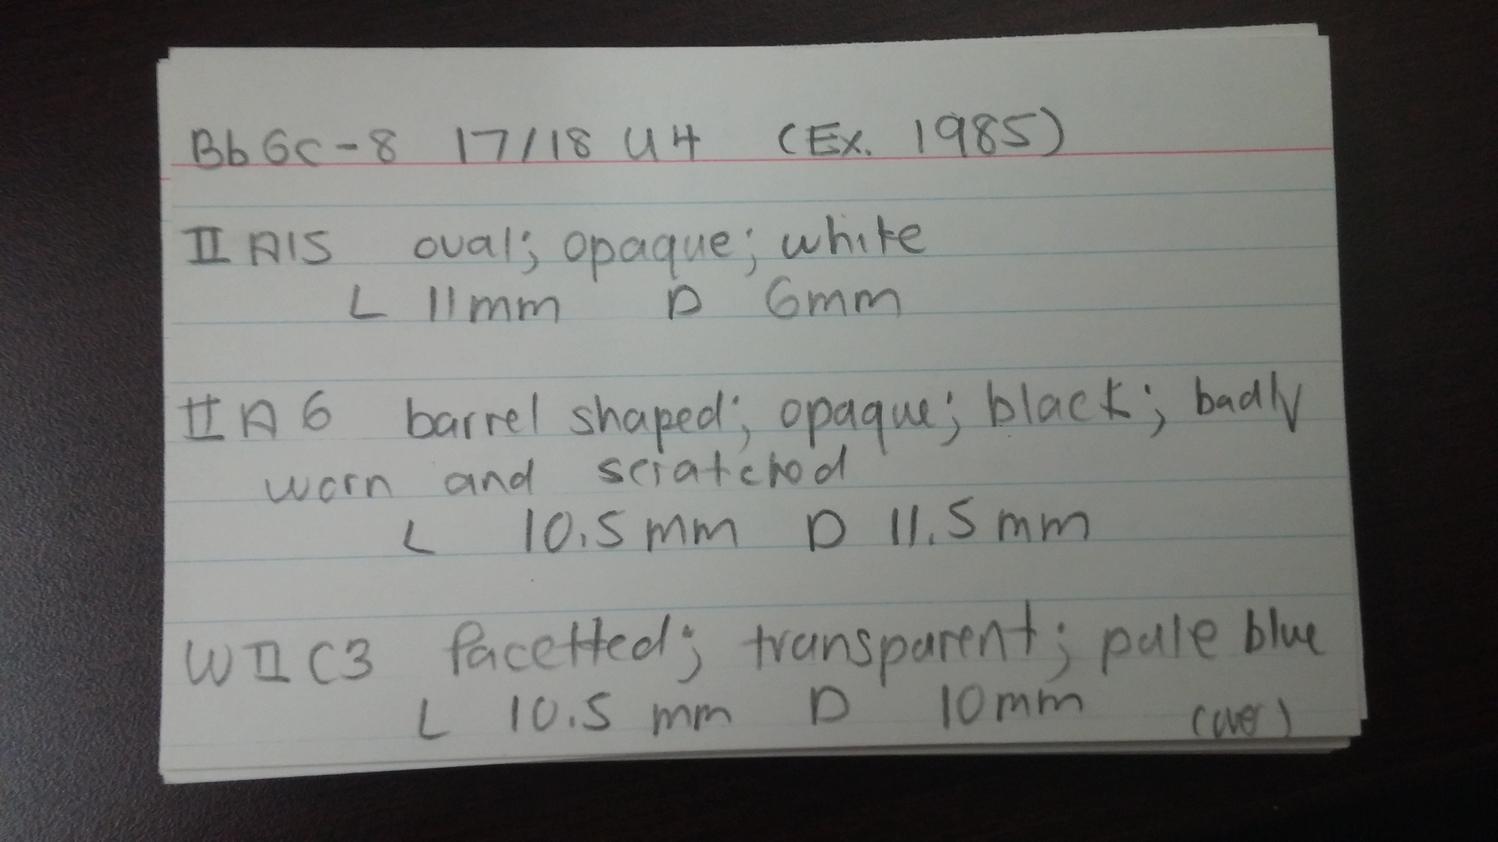 BbGc-8 17/18 U4 (Ex. 1985)
II A15 oval; opaque; white
L 11mm D 6mm
II A 6 barrel shaped; opaque; black; badly
worn and scratched
L 10.5mm D 11.5mm
W II C3 facetted; transparent; pale blue
L 10.5 mm D 10mm (over)